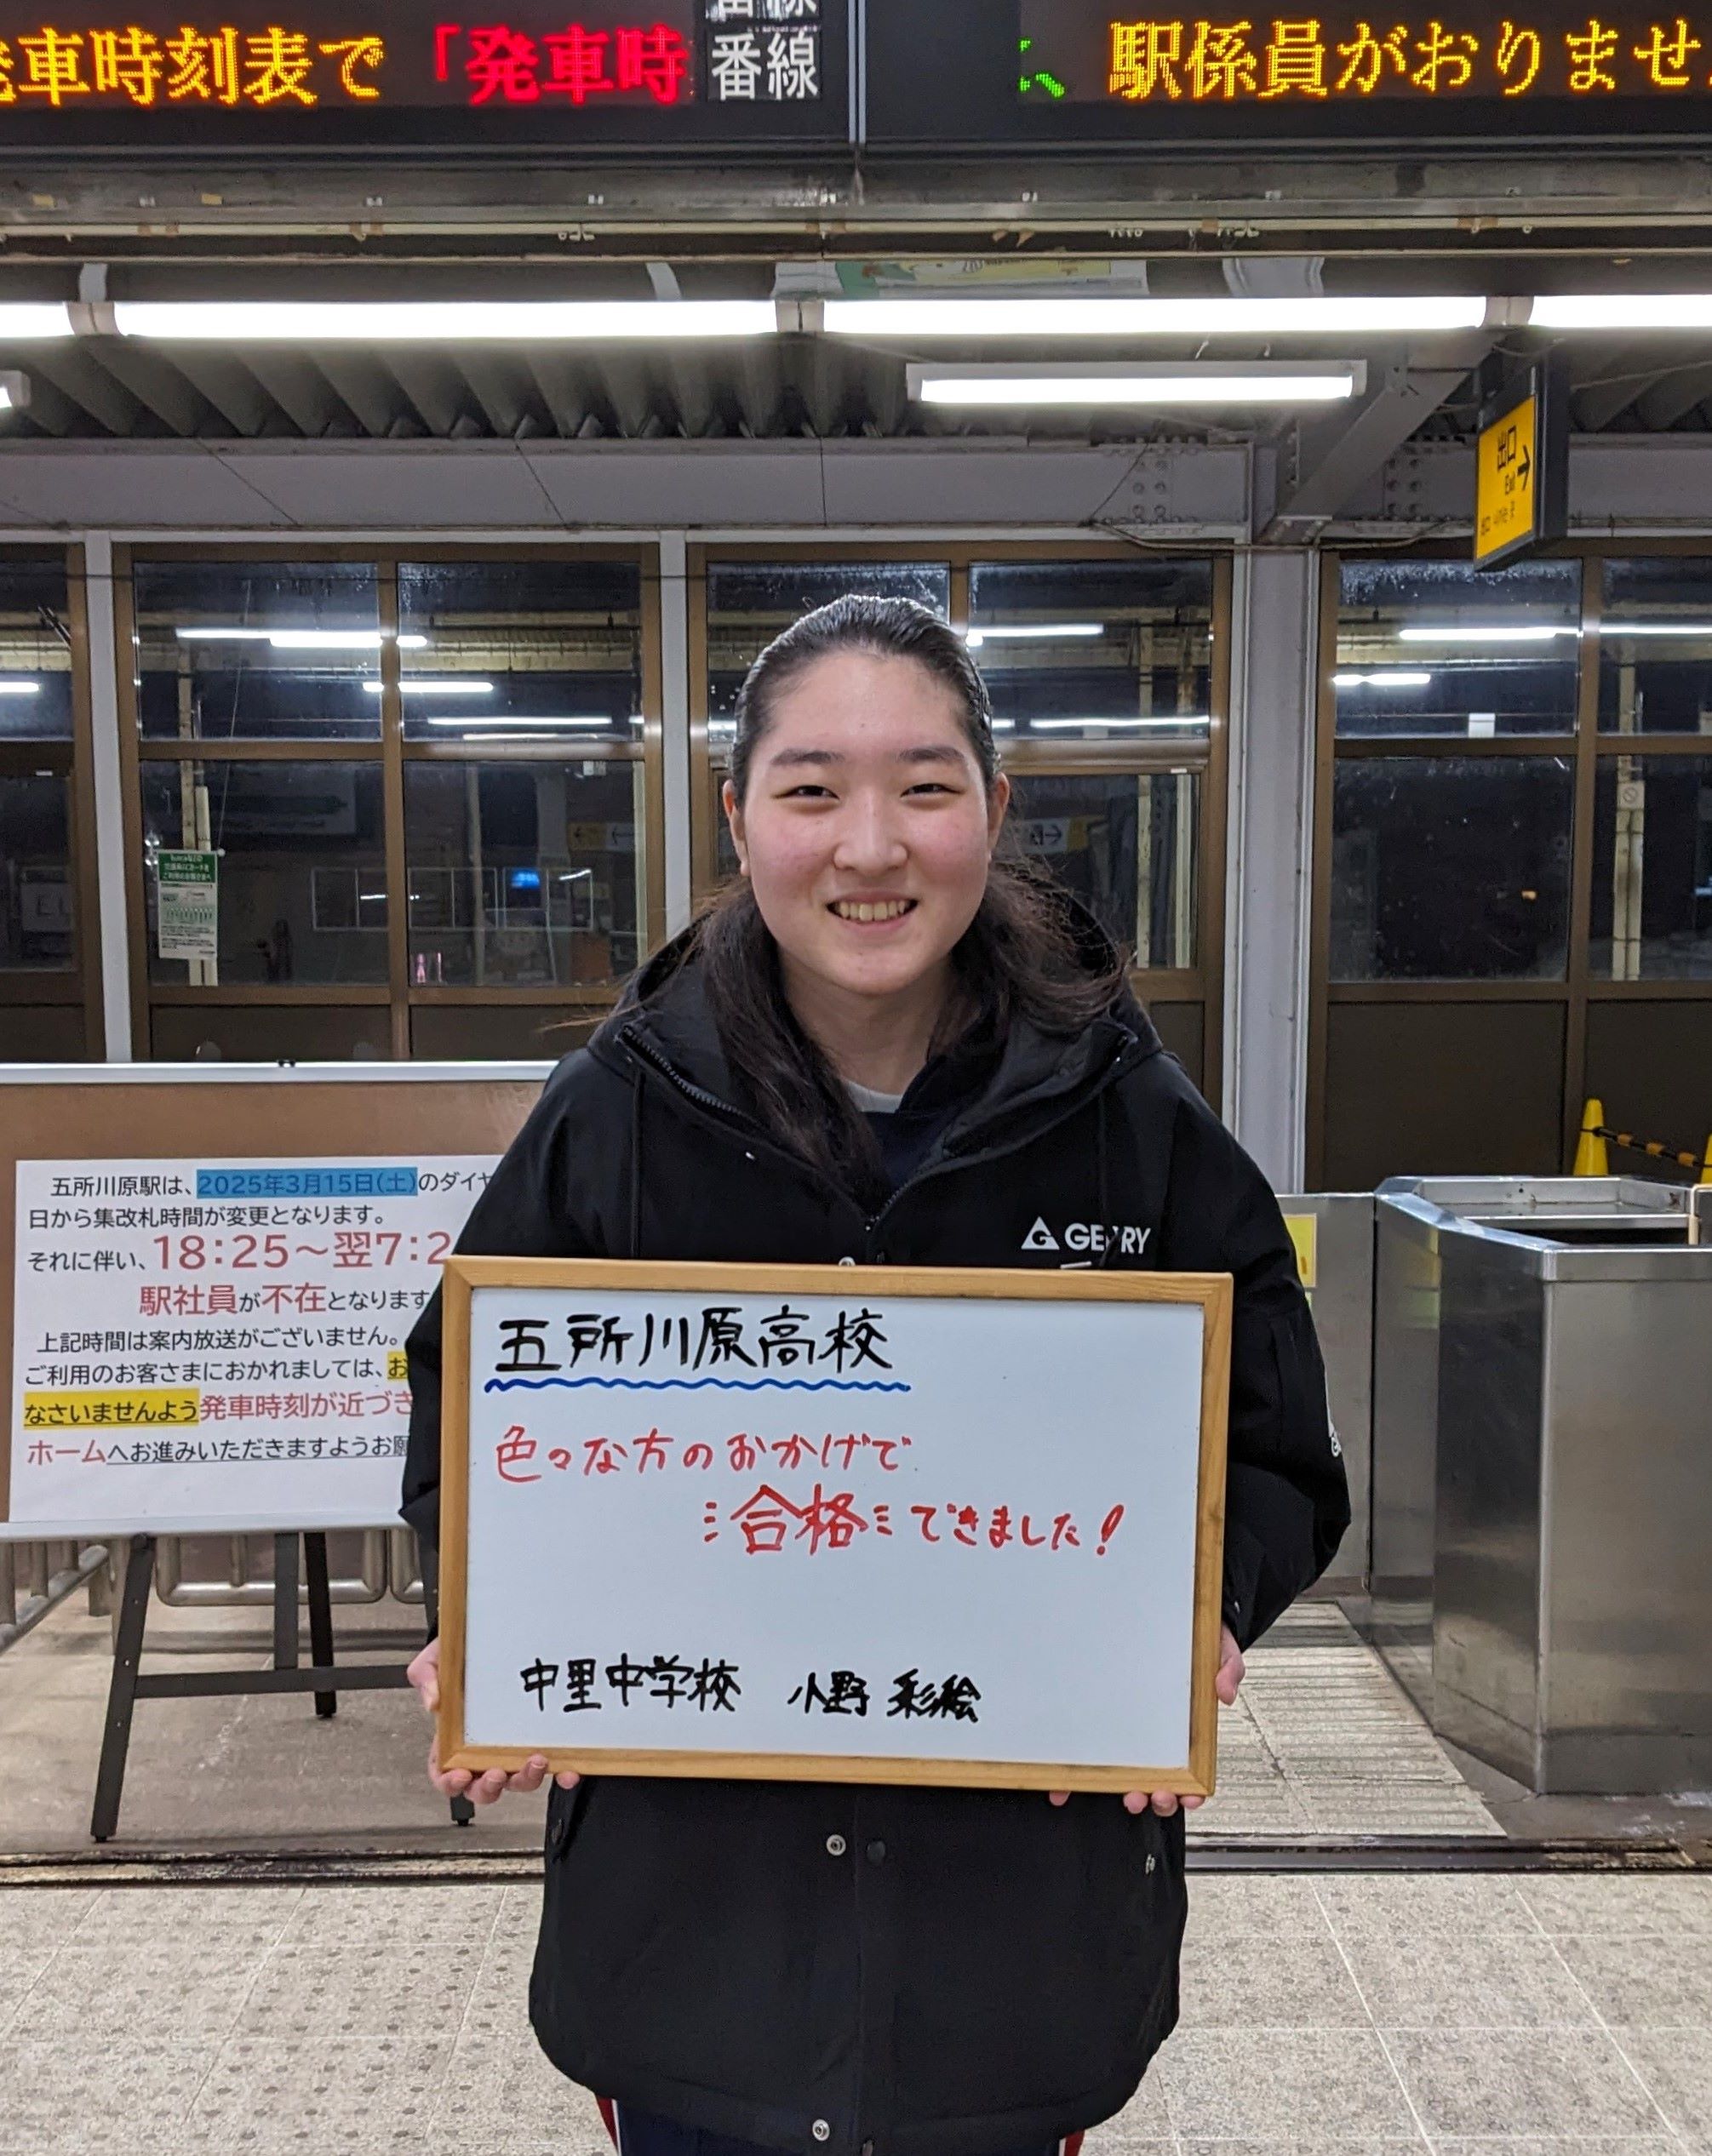 発車時刻表で「発車時
番線
番線
駅係員がおりませ
出口
Exit
五所川原駅は、2025年3月15日(土)のダイヤ
日から集改札時間が変更となります。
それに伴い、18:25～翌7:2
駅社員が不在となります
上記時間は案内放送がございません。
ご利用のお客さまにおかれましては、お
なさいませんよう発車時刻が近づき
ホームへお進みいただきますようお願
GERRY
五所川原高校
色々な方のおかげで
合格できました！
中里中学校 小野 彩絵